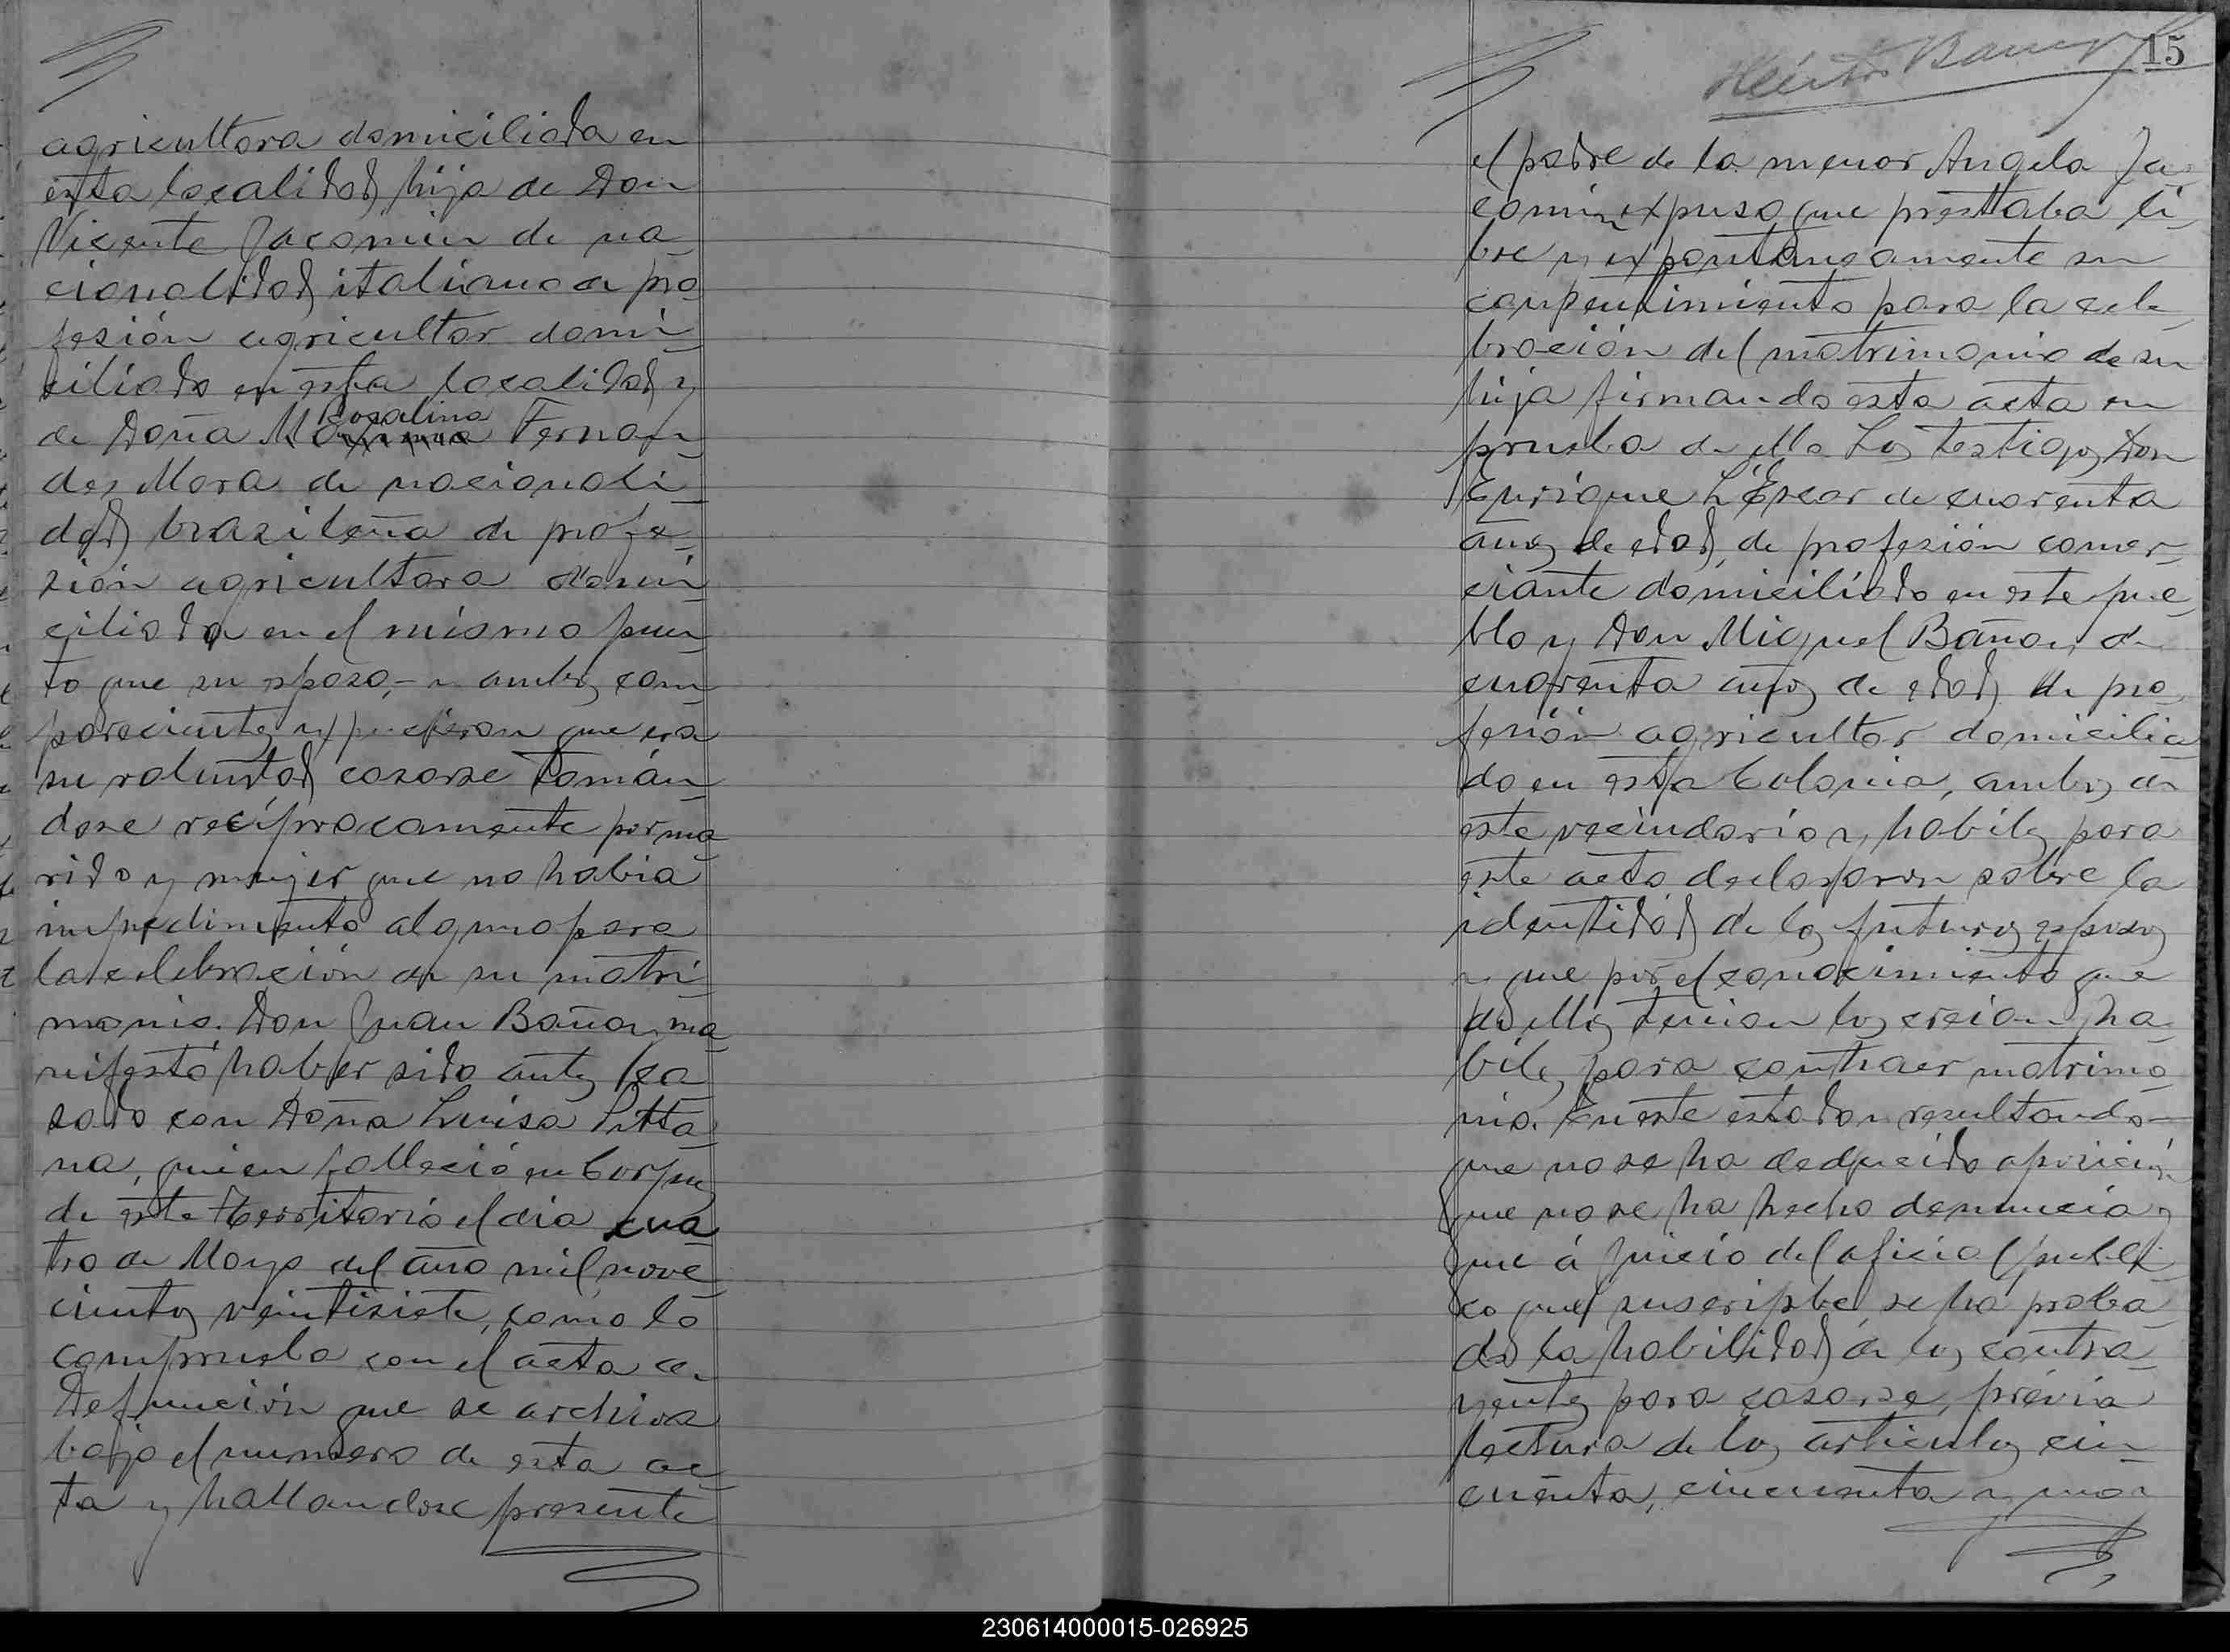 agricultora domiciliada en
esta localidad, hija de Don
Vicente Jacomin de na
cionalidad italiana de pro
fesión agricultor domi
ciliado en esta localidad y
Rosalina
de Doña Fernan
des Mora de nacionali
dad brazileña de profe
sión agricultora domi
ciliada en el mismo pun
to que su esposo,- y ambos com
parecientes expusieron que era
su voluntad casarse tomán
dose recíprocamente por ma
rido y mujer que no habia
impedimento alguno para
la celebración de su matri
monio. Don Juan Bañay ma
nifestó haber sido antes ca
sado con Doña Luisa Pitta
na, quien falleció en Corpus
de este Territorio el dia cua
tro de Mayo del año mil nove
cientos veintisiete, como lo
comprueba con el acta de
Defunción que se archiva
bajo el numero de esta ac
ta y hallandose presente
15
el padre de la menor Angela Ja
comin expuso que prestaba li
bre y expontaneamente su
consentimiento para la cele
bración del matrimonio de su
hija firmando esta acta en
prueba de ello Los testigos Don
Enrique L'Escar de cuarenta
años de edad, de profesión comer
ciante domiciliado en este pue
blo y Don Miguel Bañay de
cuarenta años de edad, de pro
fesión agricultor domicilia
do en esta Colonia, ambos de
este vecindario y habiles para
este acto declararon sobre la
identidad de los futuros esposos
y que por el conocimiento que
de ellos tenian los creian ha
biles para contraer matrimo
nio. En este estado y resultando
que no se ha deducido oposición
que no se ha hecho denuncia y
que á juicio del oficial públi
co que suscribe, se ha proba
do la habilidad de los contra
yentes para casarse, previa
lectura de los articulos cin
cuenta, cincuenta y uno
230614000015-026925